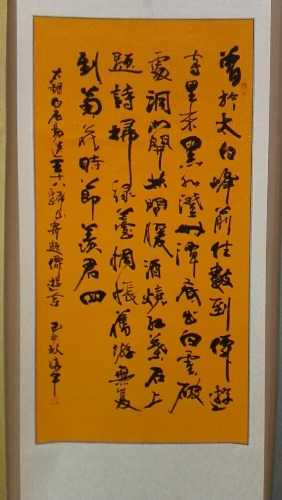 曾於太白峰前住數到僊遊
寺里来黑水澄时潭底出白雲破
處洞門開林間暖酒燒紅葉石上
題詩掃緑苔惆悵舊游無复
到菊花時節羨君回
白居易送王十八歸山寄題僊遊寺
秋